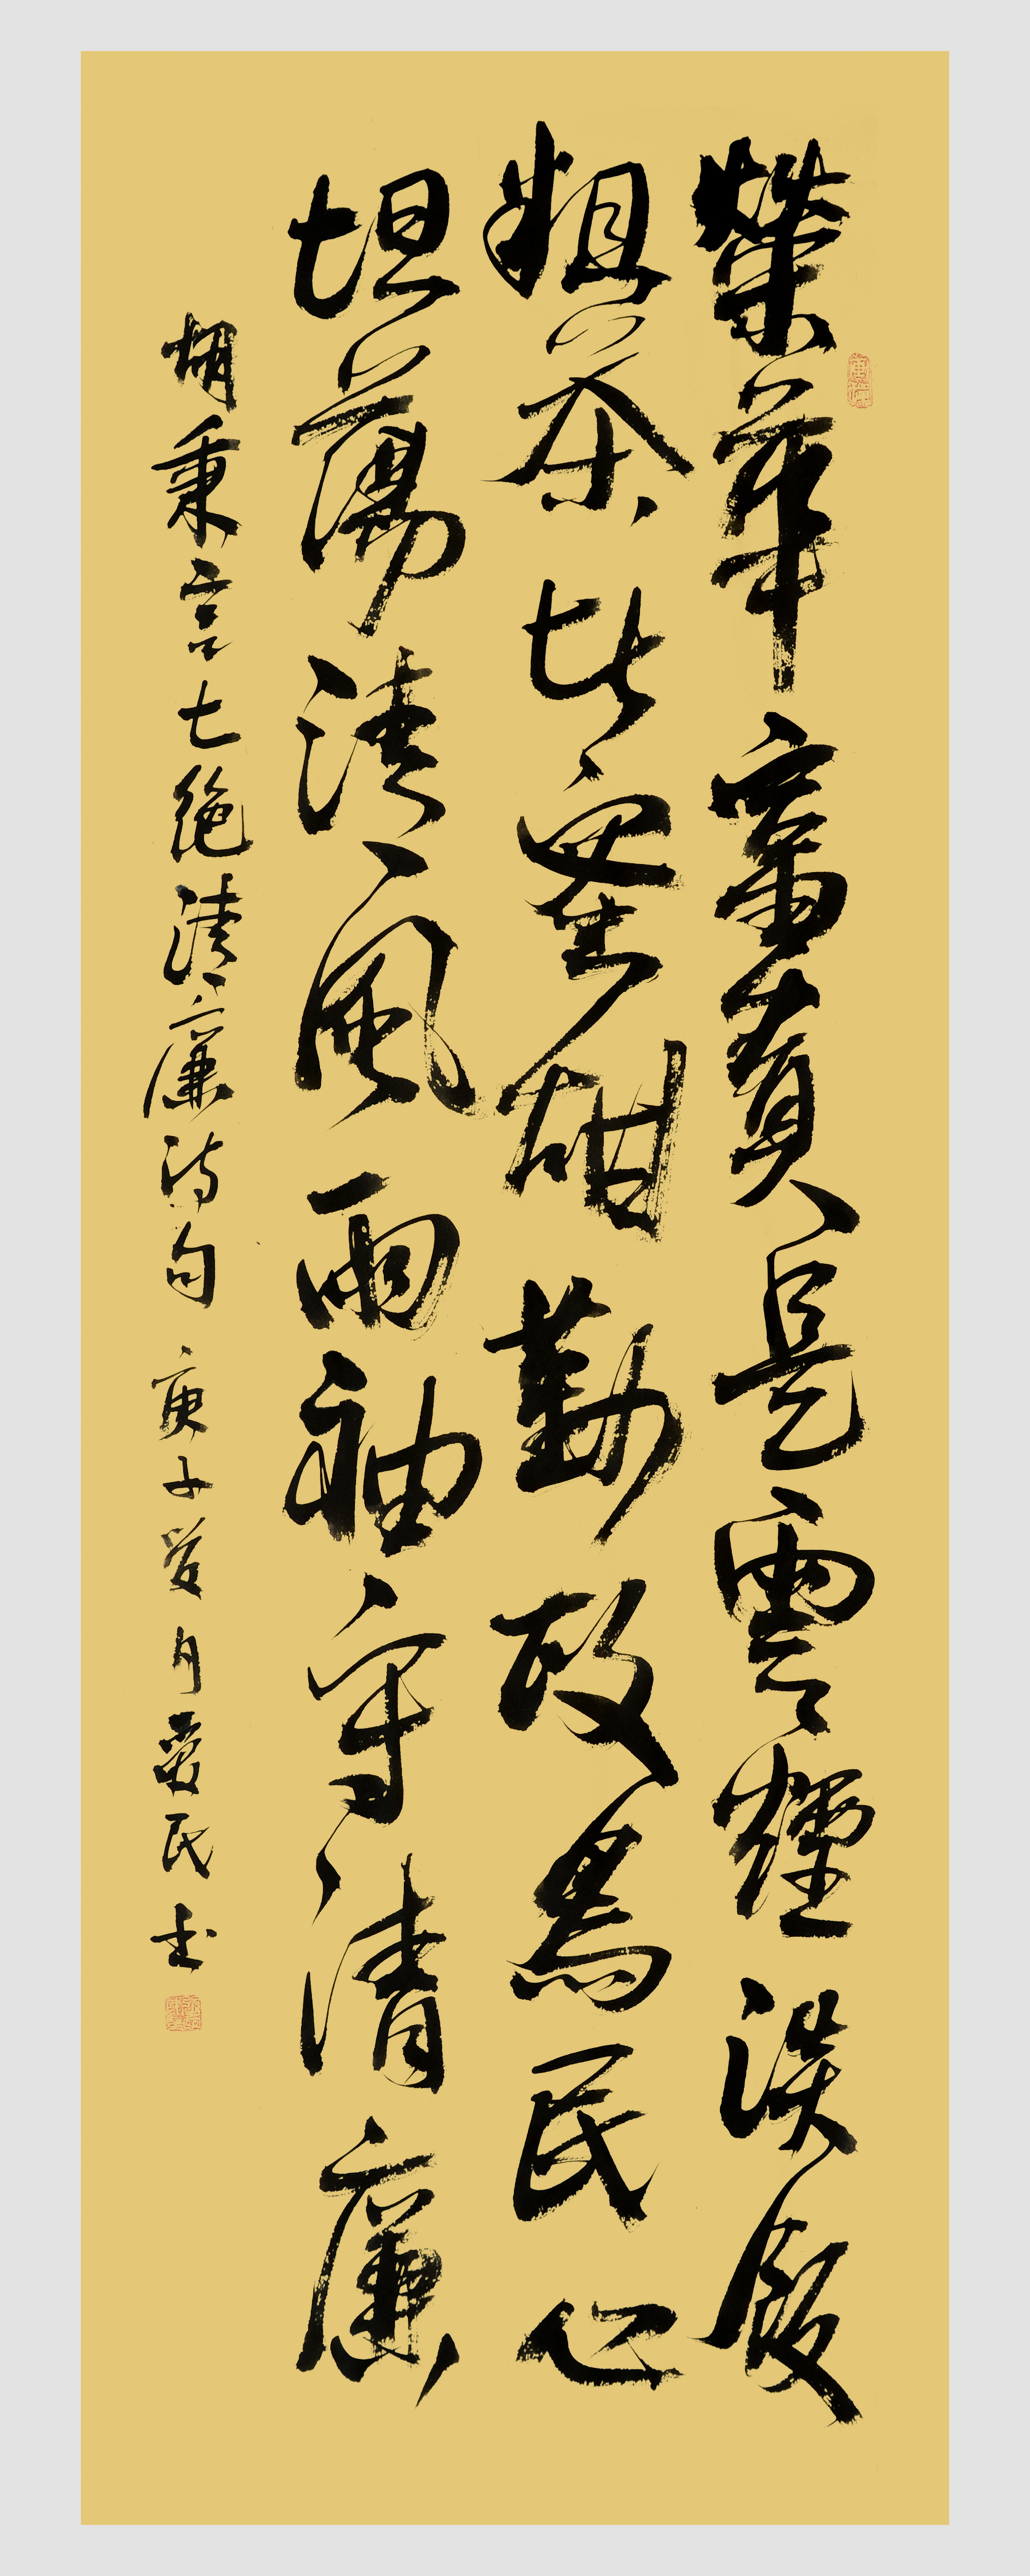 榮華富貴是雲煙淡飯
粗茶比蜜甜勤政為民心
坦蕩清風兩袖守清廉
胡秉言七絕清廉詩句庚子癸月愛民書